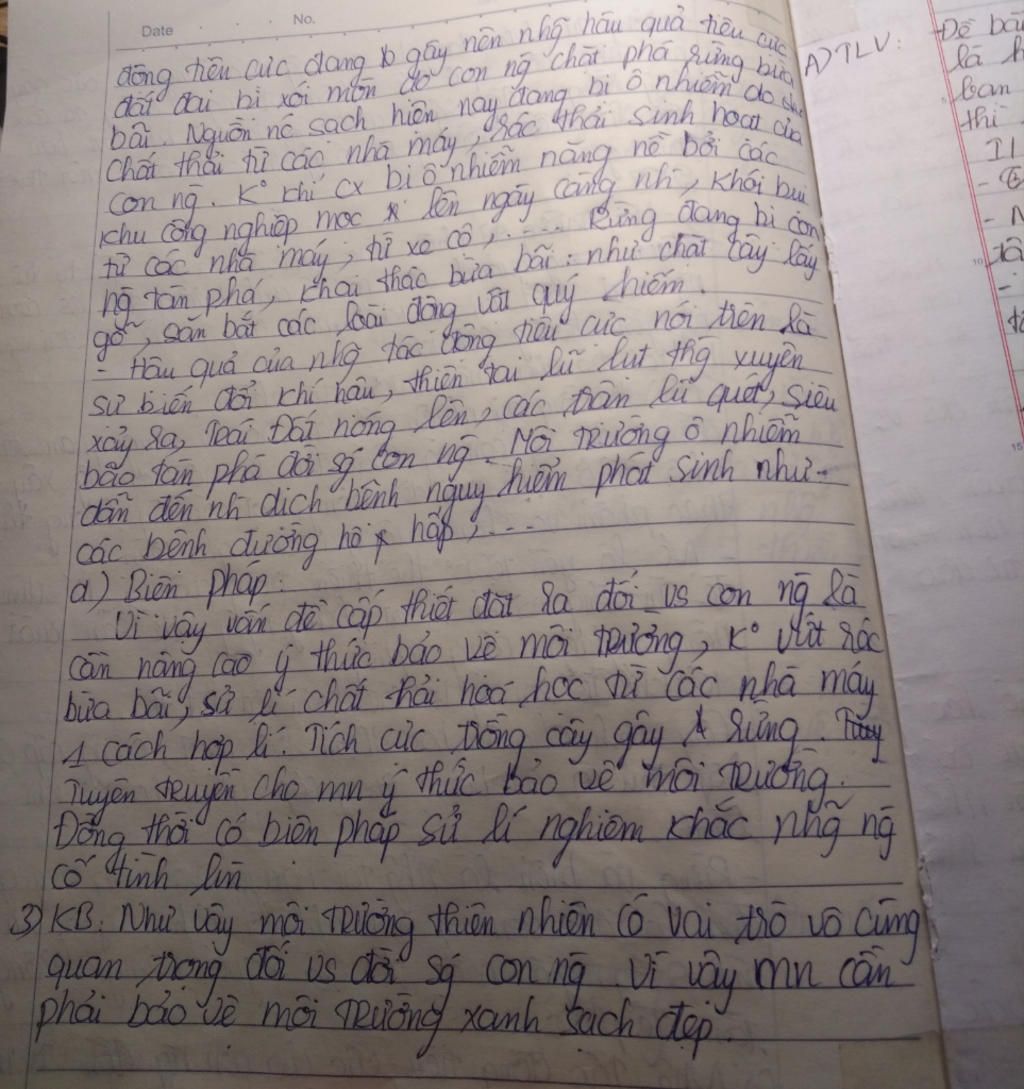 Date No.
động tiêu cực đang gây nên nhg hậu quả tiêu cực
đất đai bị xói mòn do con ng chặt phá rừng bừa
bãi. Nguồn nc sạch hiện nay đang bị ô nhiễm do
chất thải từ các nhà máy, rác thải sinh hoạt của
con ng. K° khí cx bị ô nhiễm nặng nề bởi các
khu công nghiệp mọc lên ngày càng nh, khói bụi
từ các nhà máy, từ xe cộ, .... Rừng đang bị con
ng tàn phá, khai thác bừa bãi: như chặt cây lấy
gỗ, săn bắt các loài động vật quý hiếm.
- Hậu quả của nhg tác động tiêu cực nói trên là
sự biến đổi khí hậu, thiên tai lũ lụt thg xuyên
xảy ra, Trái Đất nóng lên, các trận lũ quét, siêu
bão tàn phá đời sg con ng. Môi trường ô nhiễm
dẫn đến nh dịch bệnh nguy hiểm phát sinh như
các bệnh đường hô hấp, ...
d) Biện pháp:
Vì vậy vấn đề cấp thiết đặt ra đối vs con ng là
cần nâng cao ý thức bảo vệ môi trường, K° vứt rác
bừa bãi, sử lí chất thải hoá học từ các nhà máy
1 cách hợp lí. Tích cực trồng cây gây rừng.
Tuyên truyền cho mn ý thức bảo vệ môi trường.
Đồng thời có biện pháp sử lí nghiêm khắc nhg ng
cố tình
3) KB: Như vậy môi trường thiên nhiên có vai trò vô cùng
quan trọng đối vs đời sg con ng. Vì vậy mn cần
phải bảo vệ môi trường xanh sạch đẹp.
A) TLV:
Đề bà
là
ban
thì
II